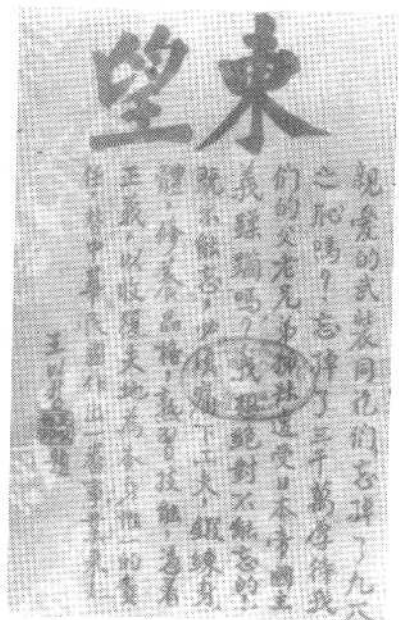 東望
親愛的武裝同胞们忘掉了九一八
之恥嗎?忘掉了三千萬厚待我
們的父老兄弟姊妹遭受日本帝國主
義蹂躪嗎?我想絕對不能忘的!
既不能忘,必須痛下工夫,鍛練身
體,修養品格,熟習技能,為着
正義,以收復失地為本身惟一的責
任替中華民國作出一番事業來!
王以哲 題